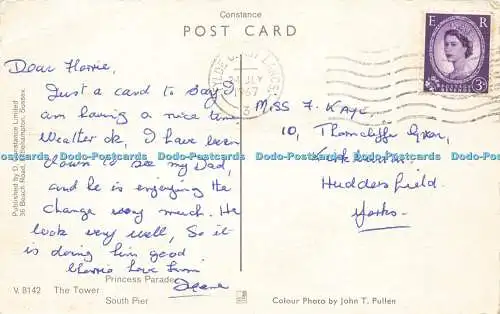 Constance
POST CARD
E R
POSTAGE REVENUE
3D
FYLDE COAST LANCS
24 JLY
1967
Dear Florrie,
Just a card to say I
am having a nice time
Weather ok, I have been
down to see my Dad,
and he is enjoying the
change very much. He
look very well, So it
is doing him good
love from
MISS F. KAYE,
10, Thorncliffe
Kirkburton
Huddersfield.
Yorks.
Published by D. Constance Limited
36 Beach Road, Littlehampton, Sussex
Dodo-Postcards Dodo-Postcards Dodo-Postcards Dodo-Postcards Dodo-Postcards
Princess Parade
V. B142 The Tower
South Pier
Colour Photo by John T. Pullen